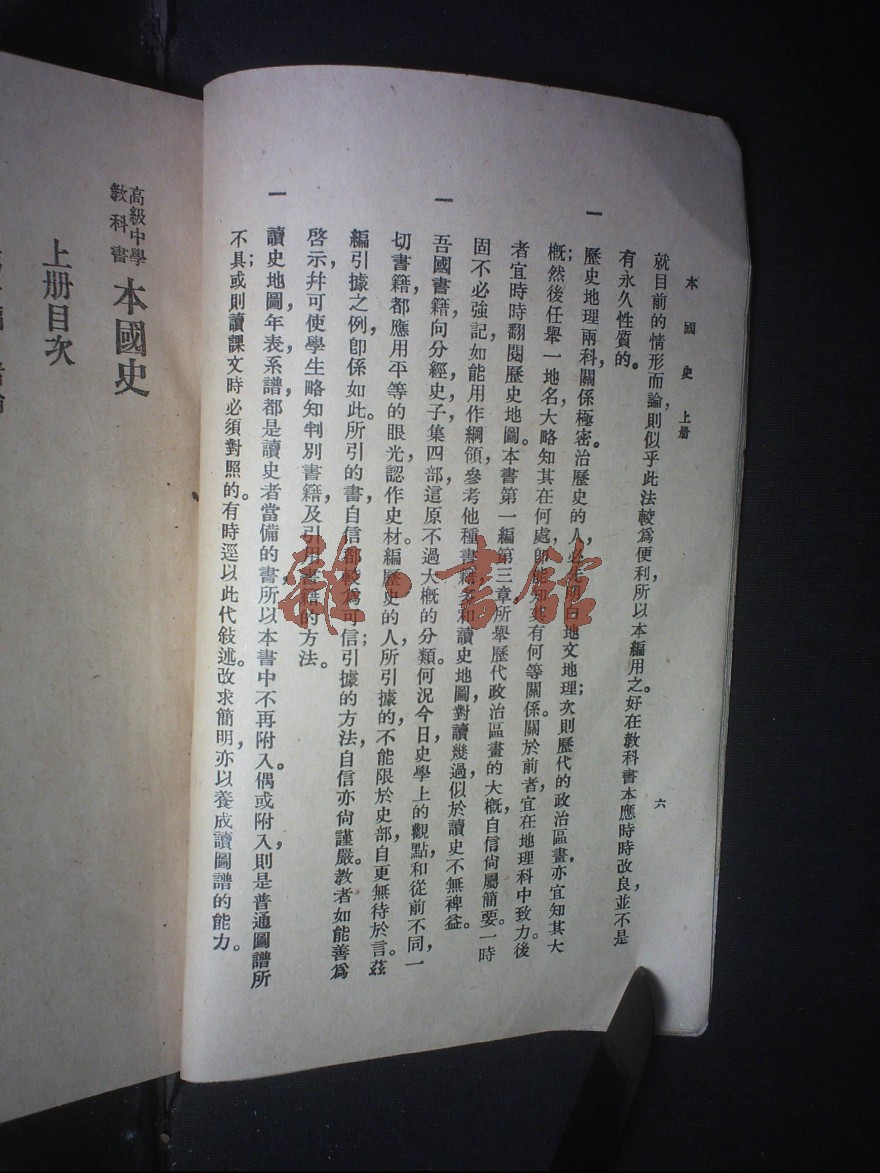 本國史 上册
六
就目前的情形而論，則似乎此法較爲便利，所以本編用之。好在教科書本應時時改良，並不是
有永久性質的。
一 歷史地理兩科，關係極密。治歷史的人，必先明白地文地理；次則歷代的政治區畫，亦宜知其大
概；然後任舉一地名，大略知其在何處，卽能知其有何等關係。關於前者，宜在地理科中致力。後
者宜時時翻閱歷史地圖。本書第一編第三章所舉歷代政治區畫的大概，自信尙屬簡要。一時
固不必強記，如能用作綱領，參考他種書籍，多和讀史地圖對讀幾過，似於讀史不無裨益。
一 吾國書籍，向分經，史，子，集四部，這原不過大概的分類。何況今日，史學上的觀點，和從前不同，一
切書籍，都應用平等的眼光，認作史材。編歷史的人，所引據的，不能限於史部，自更無待於言。茲
編引據之例，卽係如此。所引的書，自信都較爲可信；引據的方法，自信亦尙謹嚴。教者如能善爲
啓示，幷可使學生略知判別書籍，及引用書籍的方法。
一 讀史地圖，年表，系譜，都是讀史者當備的書，所以本書中不再附入。偶或附入，則是普通圖譜所
不具；或則讀課文時必須對照的。有時逕以此代敍述。改求簡明，亦以養成讀圖譜的能力。
高級中學
教科書 本國史
上册目次
雜·書館